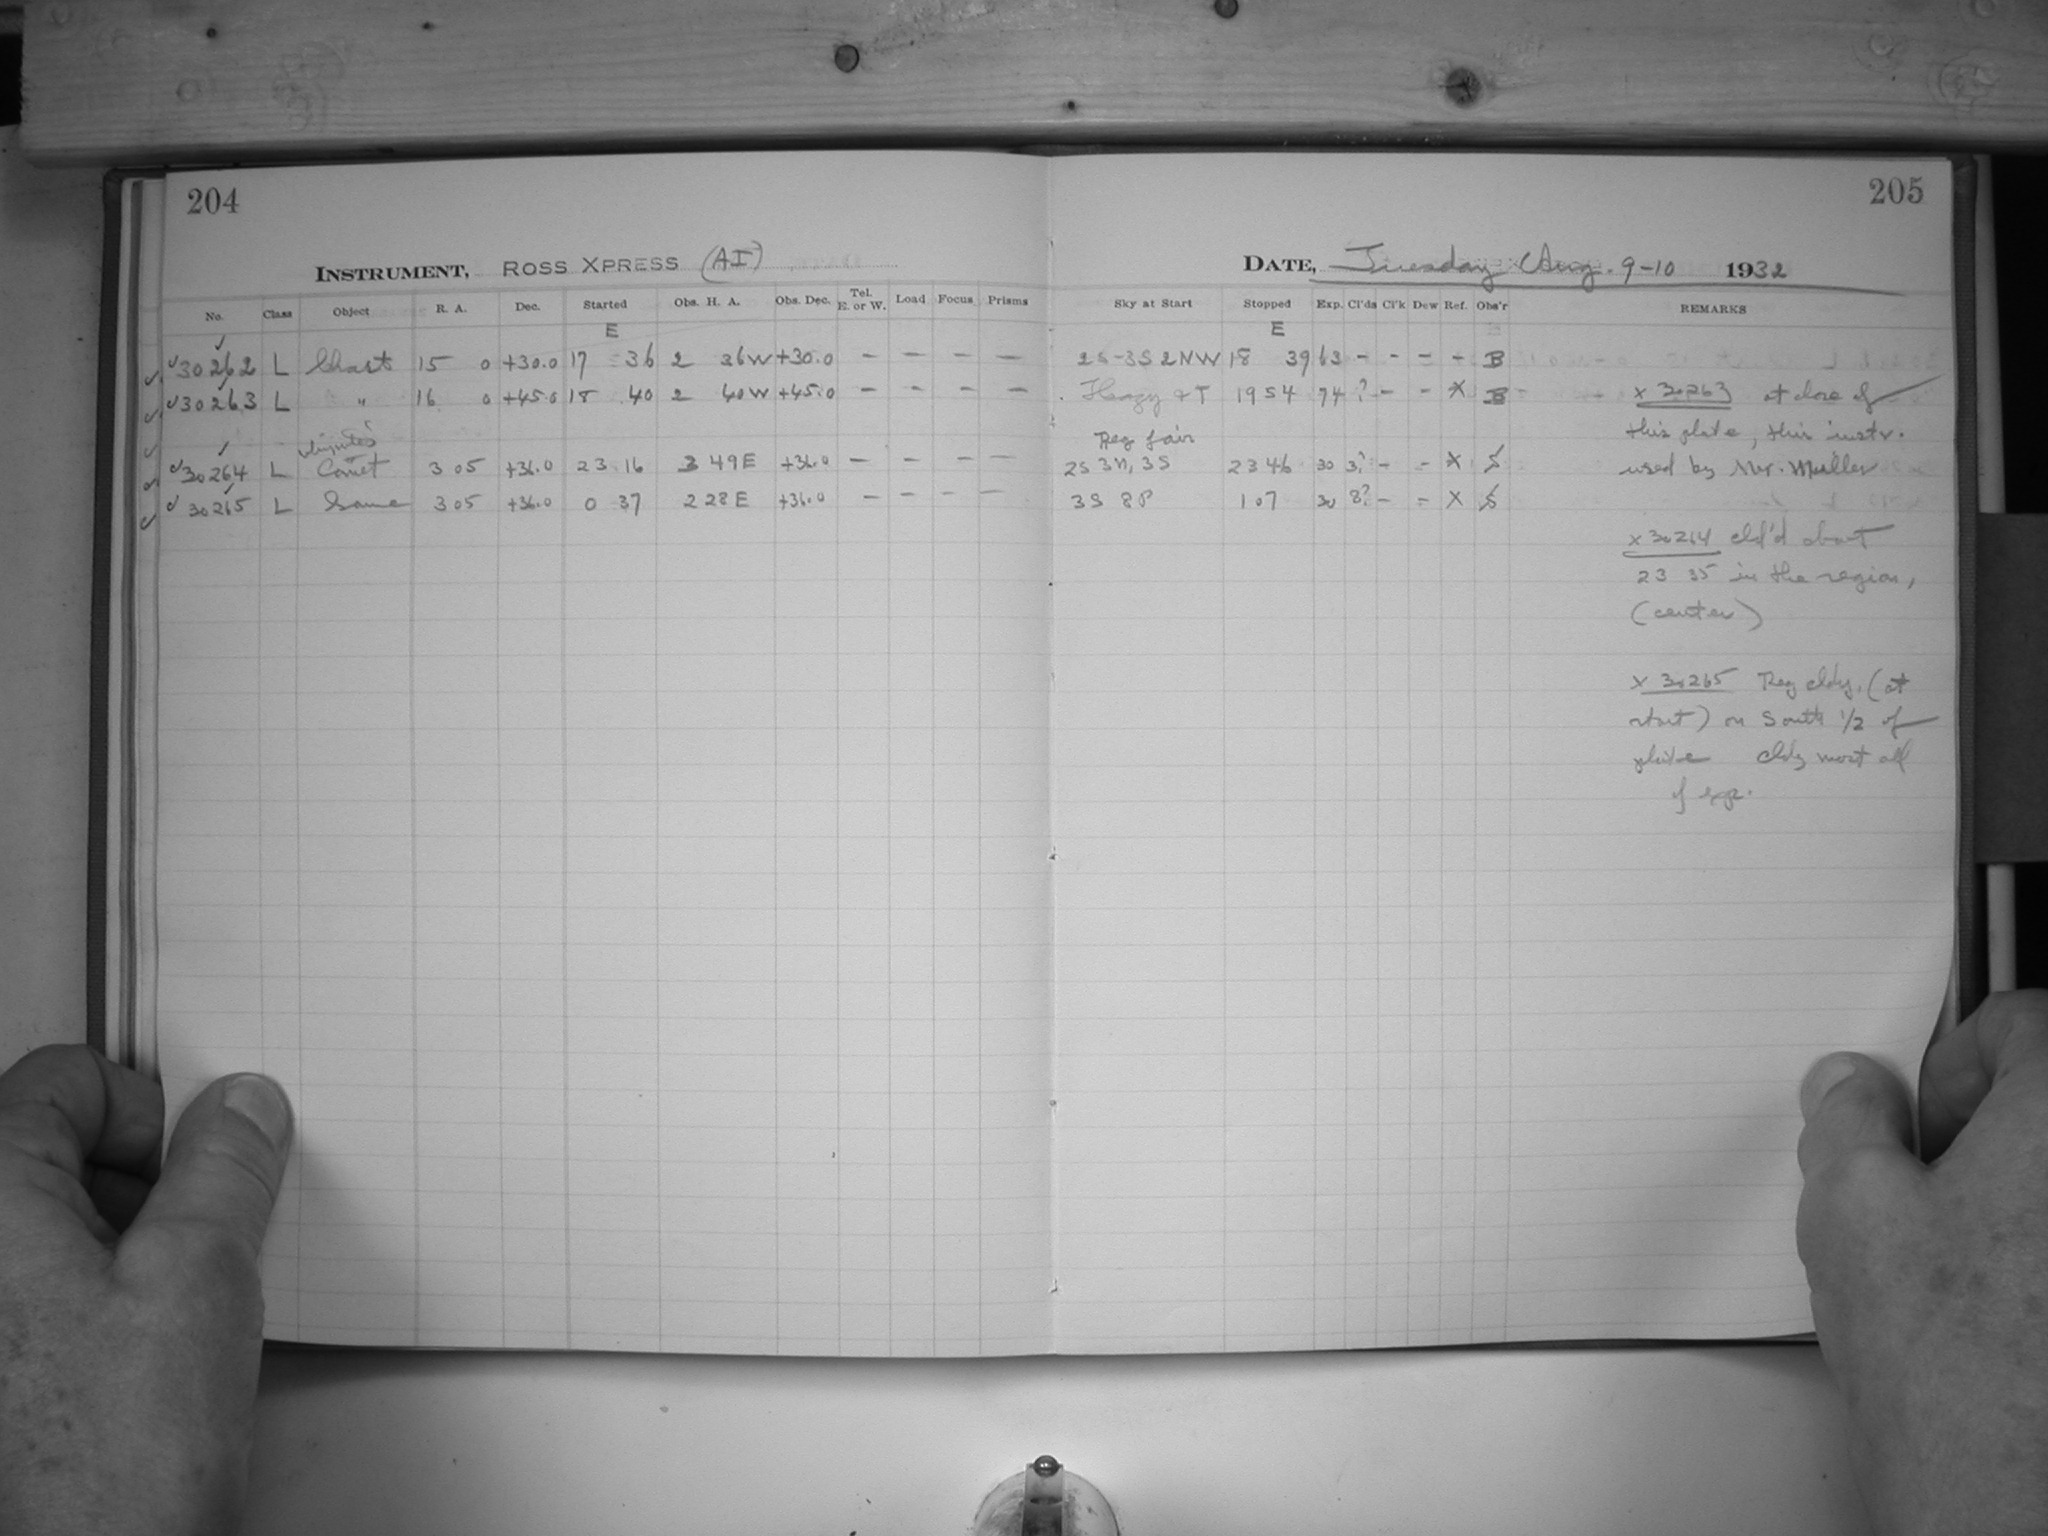 204
205
INSTRUMENT, ROSS XPRESS (AI)
DATE, Tuesday Aug. 9-10 1932
No. Class Object R. A. Dec. Started Obs. H. A. Obs. Dec. Tel. E. or W. Load Focus Prisms Sky at Start Stopped Exp. Cl'ds Cl'k Dew Ref. Obs'r REMARKS
E E
✓30262 L Chart 15 0 +30.0 17 36 2 36W +30.0 – – – – 2S-3S 2NW 18 39 63 – – – – B
✓30263 L " 16 0 +45.0 18 40 2 40W +45.0 – – – – Hazy + T 19 54 74 ? – – X B
Reg fair
✓30264 L Comet 3 05 +36.0 23 16 3 49E +36.0 – – – – 2S 3N, 3S 23 46 30 3? – – X S
✓30265 L Same 3 05 +36.0 0 37 2 28E +36.0 – – – – 3S 8P 1 07 30 8? – – X S
x 30263 at close of
this plate, this instr.
used by Mr. Muller
x 30264 cld'd about
23 35 in the region,
(center)
x 30265 Reg cldy, (at
start) on South 1/2 of
plate cldy most all
of exp.